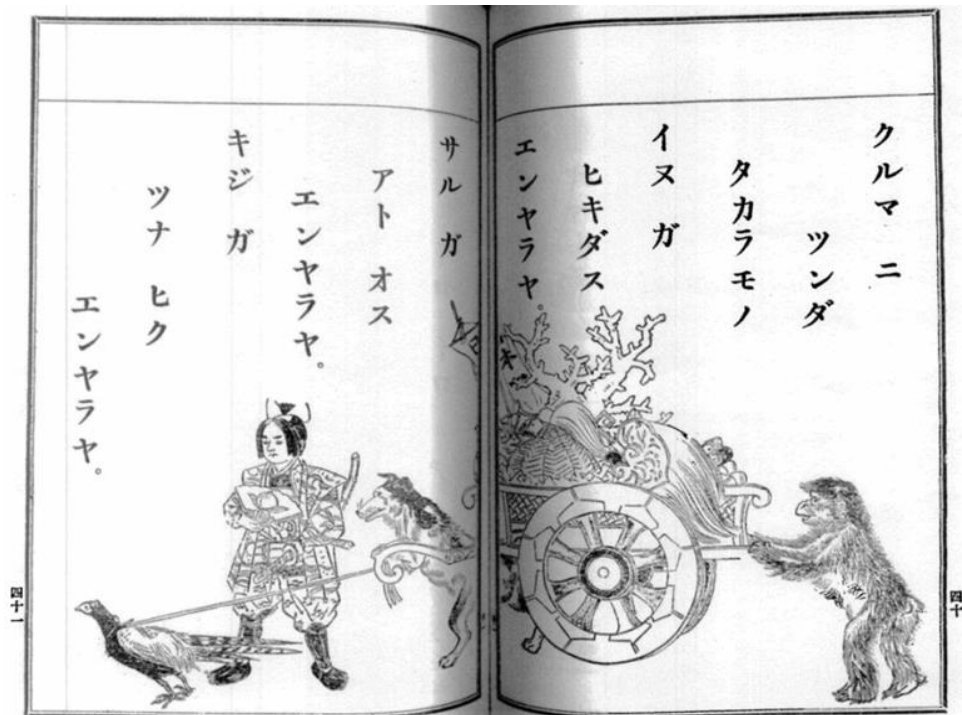 クルマ ニ
ツンダ
タカラモノ
イヌ ガ
ヒキダス
エンヤラヤ。
サル ガ
アト オス
エンヤラヤ。
キジ ガ
ツナ ヒク
エンヤラヤ。
四十
四十一